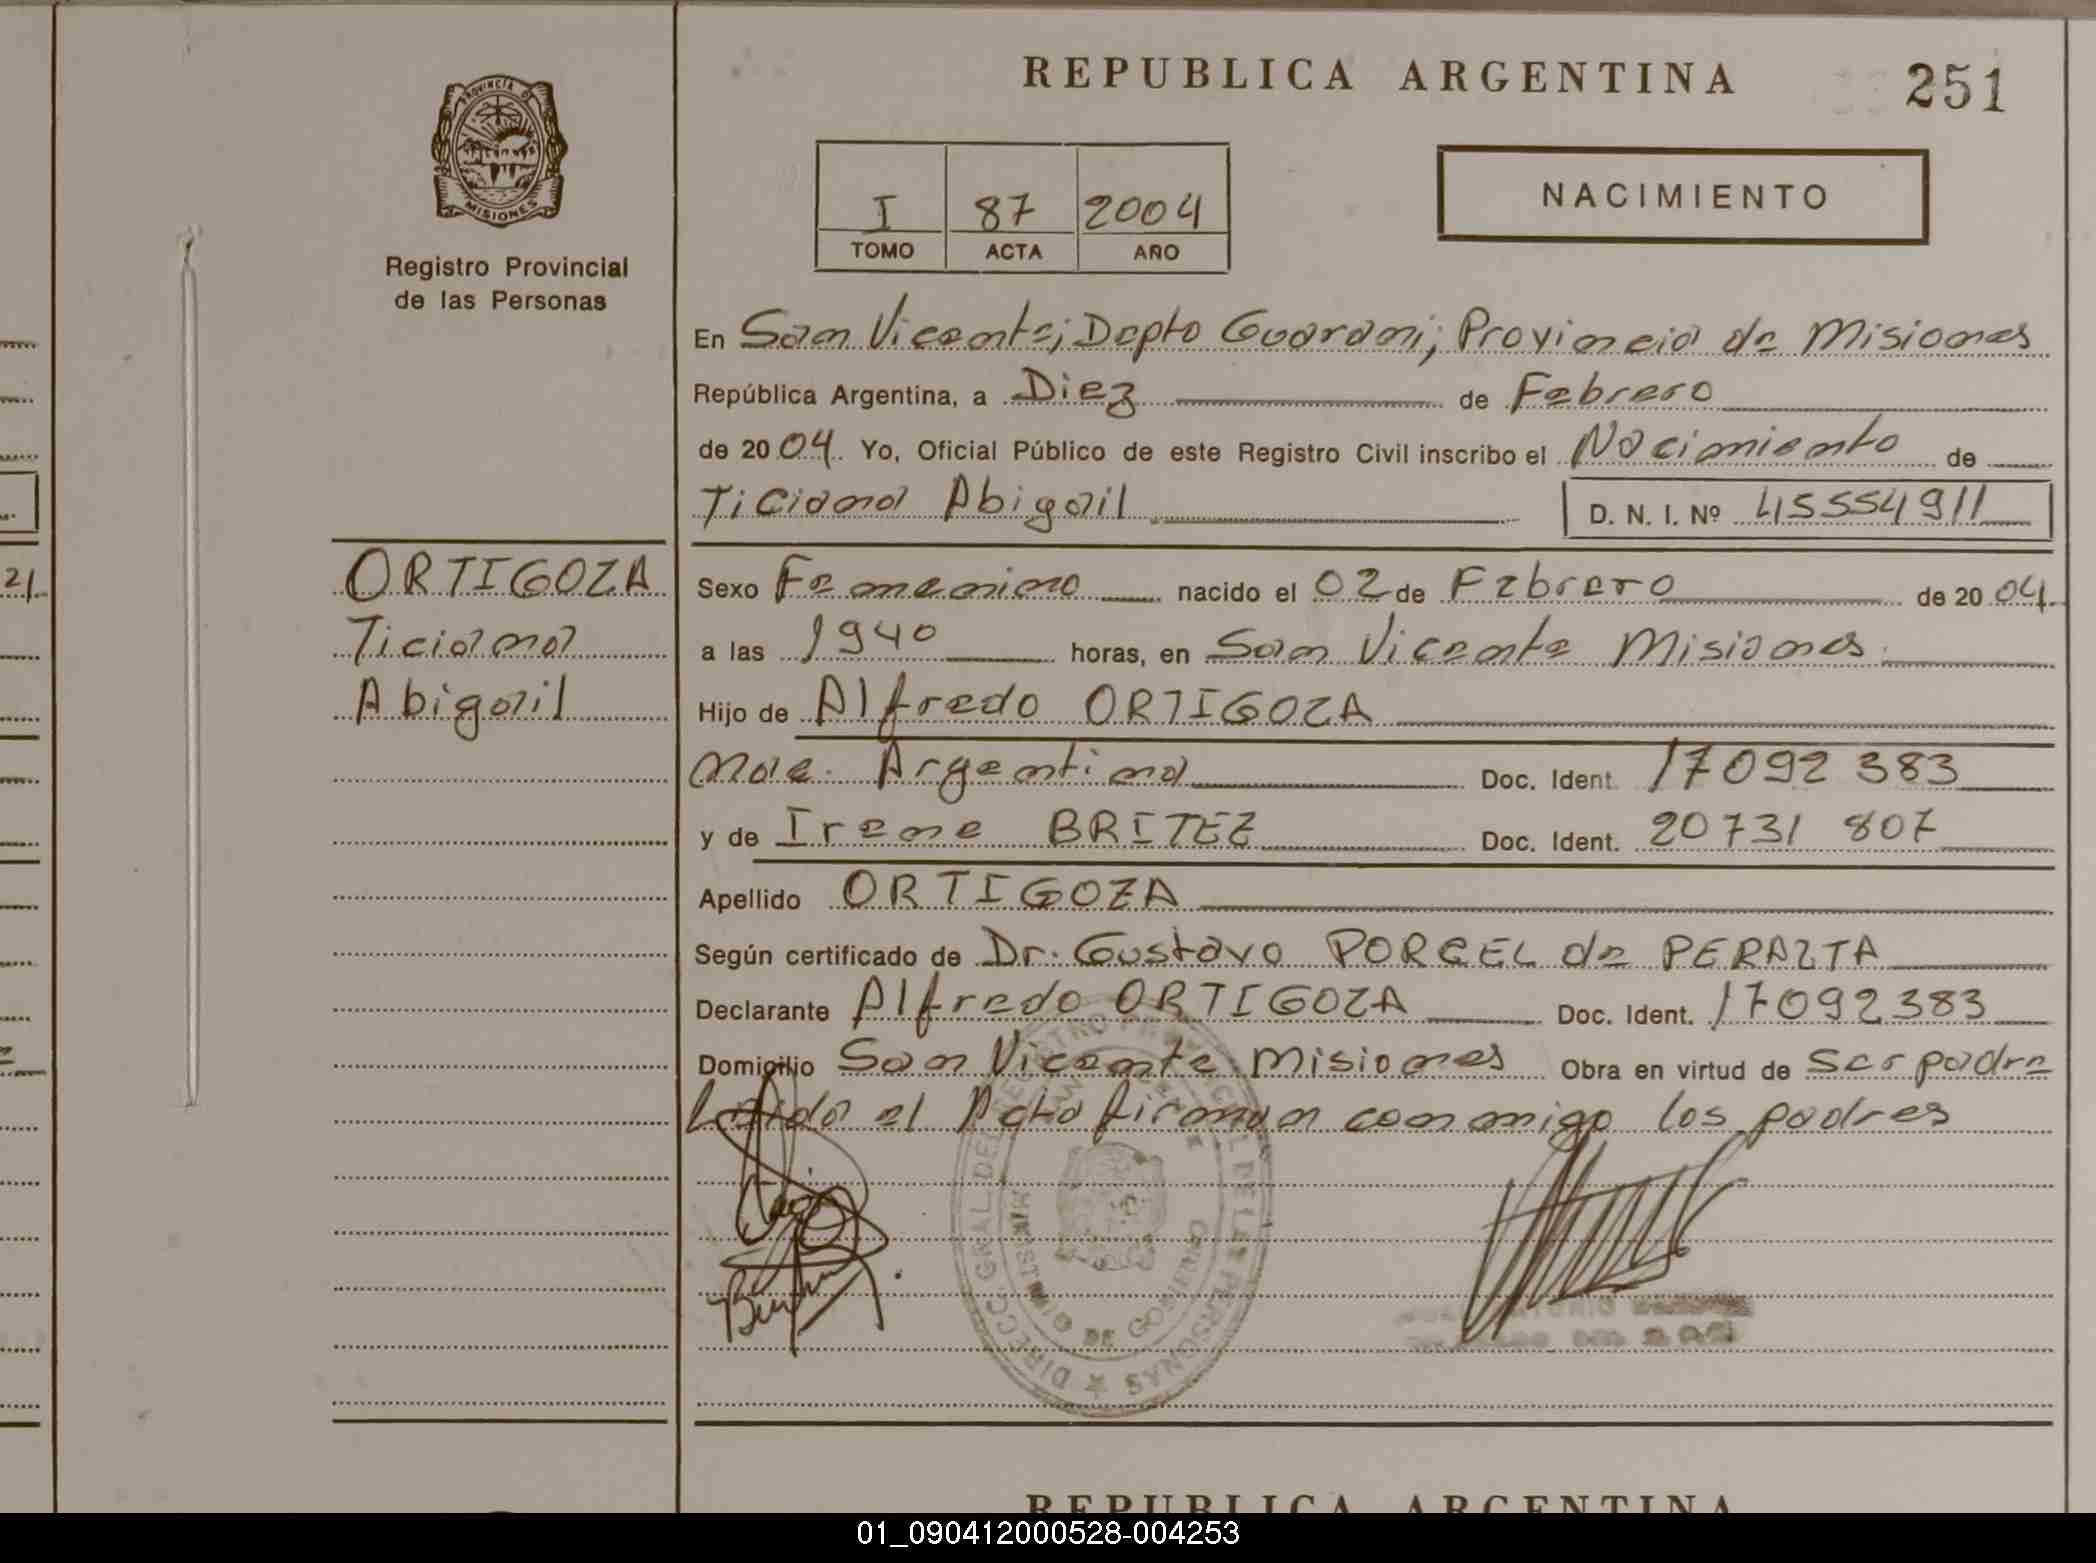 PROVINCIA DE
MISIONES
Registro Provincial
de las Personas
ORTIGOZA
Ticiana
Abigail
REPUBLICA ARGENTINA
251
I 87 2004
TOMO ACTA AÑO
NACIMIENTO
En San Vicente; Depto Guarani; Provincia de Misiones
República Argentina, a Diez de Febrero
de 2004. Yo, Oficial Público de este Registro Civil inscribo el Nacimiento de
Ticiana Abigail D. N. I. Nº 45554911
Sexo Femenino nacido el 02 de Febrero de 2004
a las 1940 horas, en San Vicente Misiones
Hijo de Alfredo ORTIGOZA
Nac. Argentina Doc. Ident. 17092383
y de Irene BRITEZ Doc. Ident. 20731 807
Apellido ORTIGOZA
Según certificado de Dr. Gustavo PORCEL de PERALTA
Declarante Alfredo ORTIGOZA Doc. Ident. 17092383
Domicilio San Vicente Misiones Obra en virtud de Ser padre
Leida el Acta firman conmigo los padres
DIRECC. GRAL. DEL REGISTRO PROVINCIAL DE LAS PERSONAS
SAN VICENTE
MINISTERIO DE GOBIERNO
REPUBLICA ARGENTINA
01_090412000528-004253